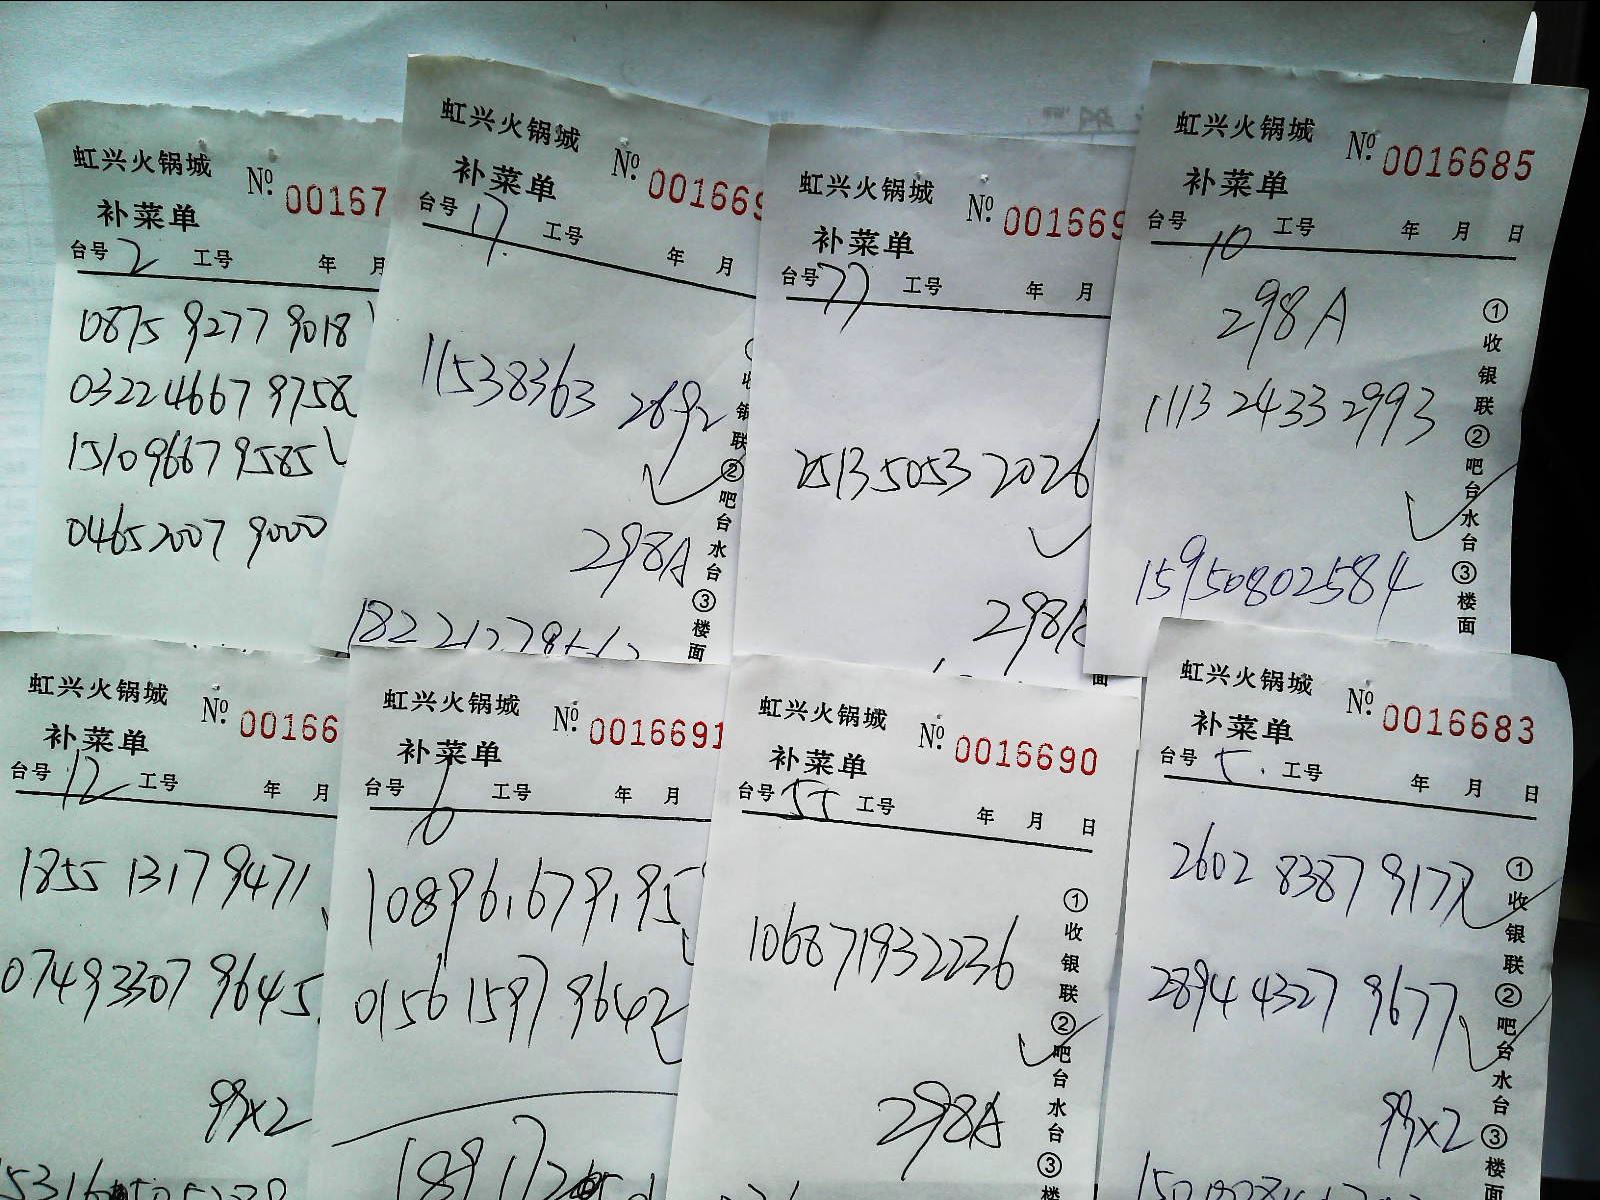 虹兴火锅城 № 00167
补菜单
台号 2 工号 年 月
0875 9277 9018
0322 4667 9758
1510 9667 9585
0465 2007 9000
虹兴火锅城 № 001669
补菜单
台号 17 工号 年 月
11538363 2692
298A
银联②吧台水台③楼面
虹兴火锅城 № 001669
补菜单
台号 77 工号 年 月
2513 5053 2026
298A
虹兴火锅城 № 0016685
补菜单
台号 10 工号 年 月 日
298A
1113 2433 2993
15950802584
①收银联②吧台水台③楼面
虹兴火锅城 № 00166
补菜单
台号 12 工号 年 月
1855 1317 9471
0749 3307 9645
99x2
虹兴火锅城 № 0016691
补菜单
台号 6 工号 年 月
1089 6167 9195
0156 1597 9642
虹兴火锅城 № 0016690
补菜单
台号 55 工号 年 月 日
106871932236
298A
①收银联②吧台水台③楼
虹兴火锅城 № 0016683
补菜单
台号 5. 工号 年 月 日
2602 8387 9177
2894 4327 9677
99x2
①收银联②吧台水台③楼面